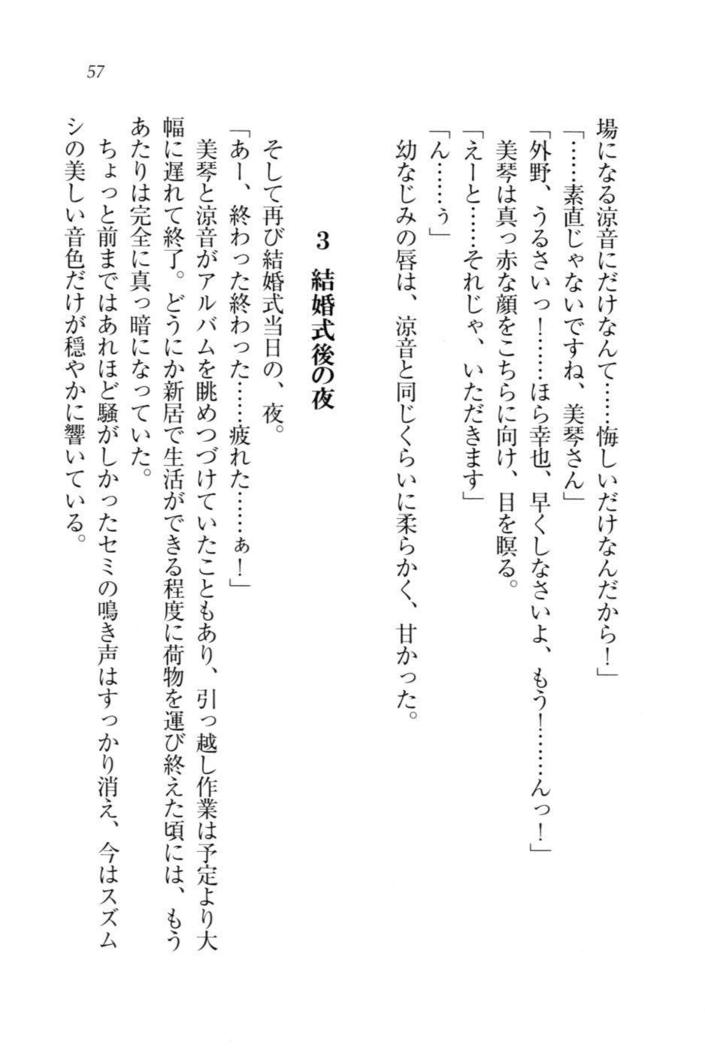 57
場になる涼音にだけなんて……悔しいだけなんだから！」
「……素直じゃないですね、美琴さん」
「外野、うるさいっ！……ほら幸也、早くしなさいよ、もう！………んっ！」
美琴は真っ赤な顔をこちらに向け、目を瞑る。
「えーと……それじゃ、いただきます」
「ん……ぅ」
幼なじみの唇は、涼音と同じくらいに柔らかく、甘かった。
3 結婚式後の夜
そして再び結婚式当日の、夜。
「あー、終わった終わった……疲れた……ぁ！」
美琴と涼音がアルバムを眺めつづけていたこともあり、引っ越し作業は予定より大
幅に遅れて終了。どうにか新居で生活ができる程度に荷物を運び終えた頃には、もう
あたりは完全に真っ暗になっていた。
ちょっと前まではあれほど騒がしかったセミの鳴き声はすっかり消え、今はスズム
シの美しい音色だけが穏やかに響いている。